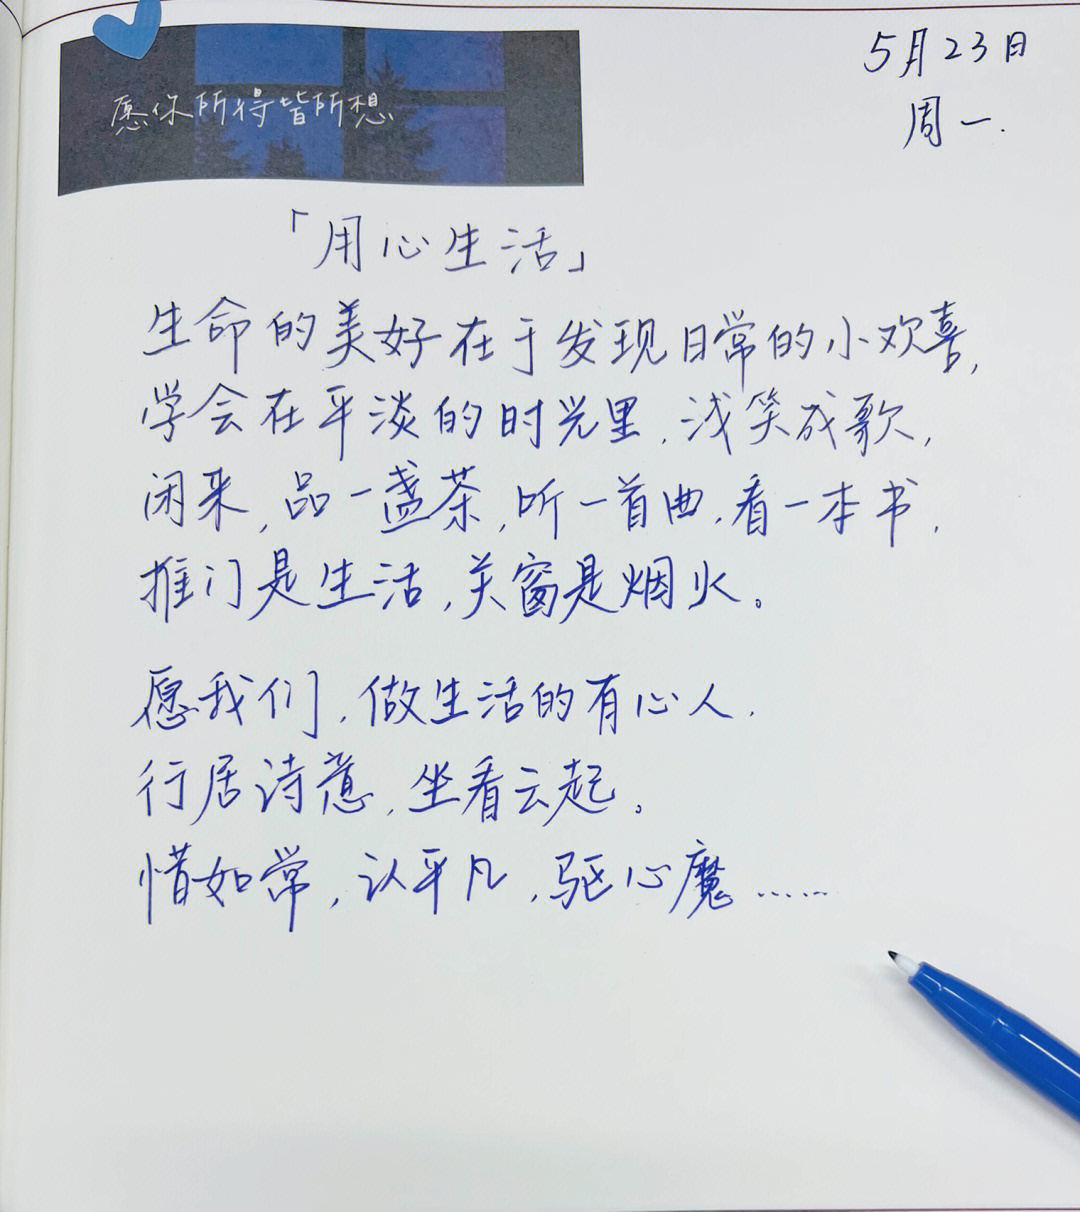 愿你所得皆所想
5月23日
周一.
「用心生活」
生命的美好在于发现日常的小欢喜,
学会在平淡的时光里,浅笑成歌,
闲来,品一盏茶,听一首曲,看一本书,
推门是生活,关窗是烟火。
愿我们,做生活的有心人,
行居诗意,坐看云起。
惜如常,认平凡,驱心魔……